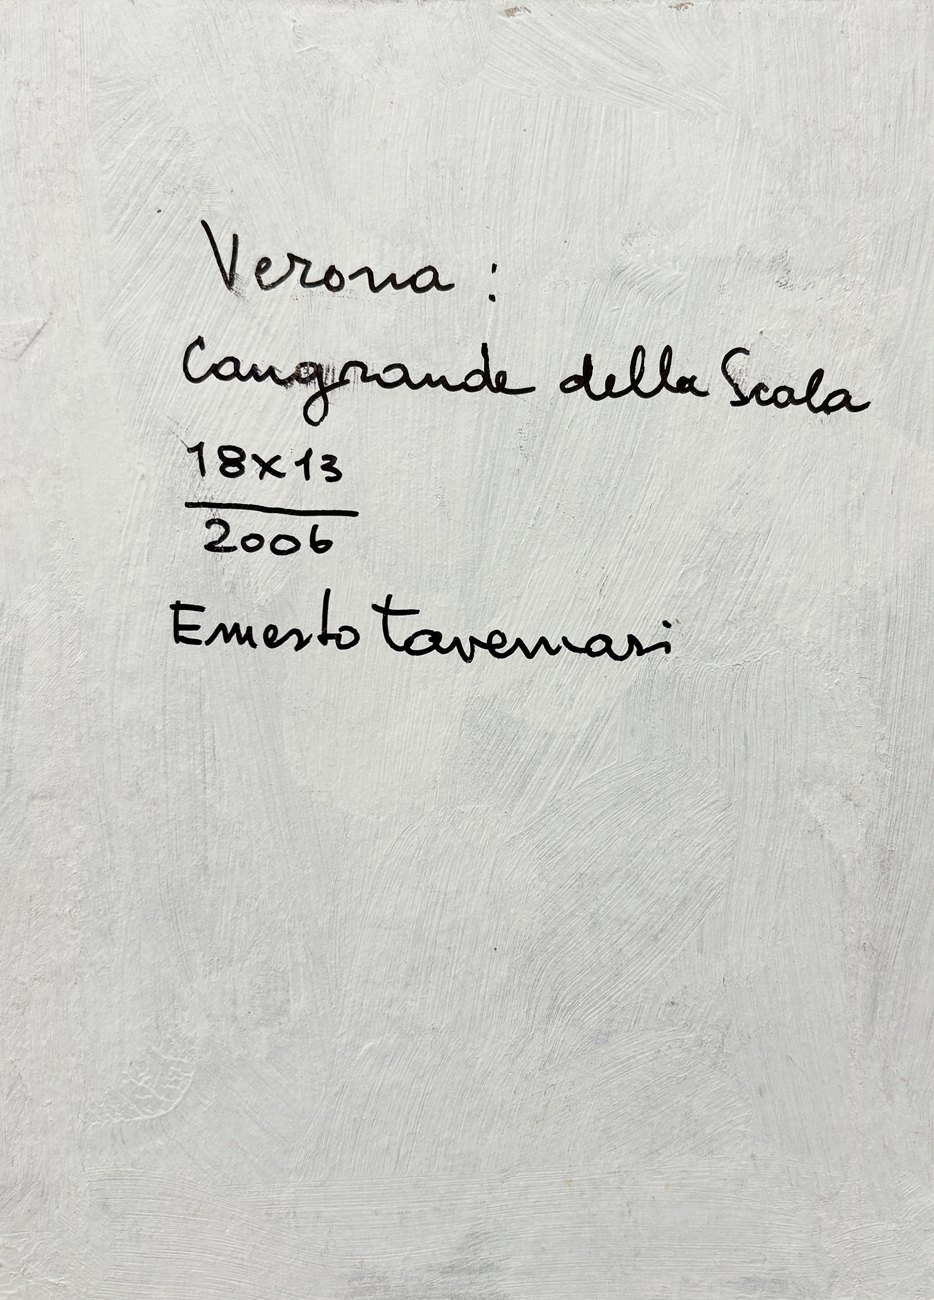 Verona :
Cangrande della Scala
18x13
2006
Ernesto Tavernari